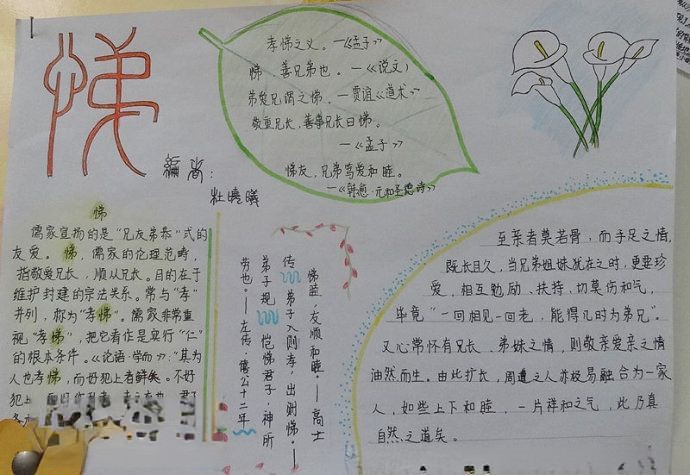 悌
孝悌之义。—《孟子》
悌 善兄弟也。—《说文》
弟爱兄谓之悌，—贾谊《道术》
敬重兄长，善事兄长曰悌。
—《孟子》
悌友，兄弟笃爱和睦。
—《韩愈·元和圣德诗》
编者：
杜晓曦
悌
儒家宣扬的是“兄友弟恭”式的
友爱。悌，儒家的伦理范畴，
指敬爱兄长，顺从兄长。目的在于
维护封建的宗法关系。常与“孝”
并列，称为“孝悌”。儒家非常重
视“孝悌”，把它看作是实行“仁”
的根本条件。《论语·学而》：“其为
人也孝悌，而好犯上者鲜矣。不好
悌益，友顺和睦。—高士
传 弟子入则孝，出则悌—
弟子规 恺悌君子，神所
劳也。—左传·僖公十二年
至亲者莫若骨，而手足之情，
既长且久，当兄弟姐妹犹在之时，更要珍
爱，相互勉励、扶持，切莫伤和气，
毕竟“一回相见一回老，能得几时为弟兄”。
又心常怀有兄长、弟妹之情，则敬亲爱亲之情
油然而生。由此扩长，周遭之人亦极易融合为一家
人，如些上下和睦，一片祥和之气，此乃真
自然之道矣。